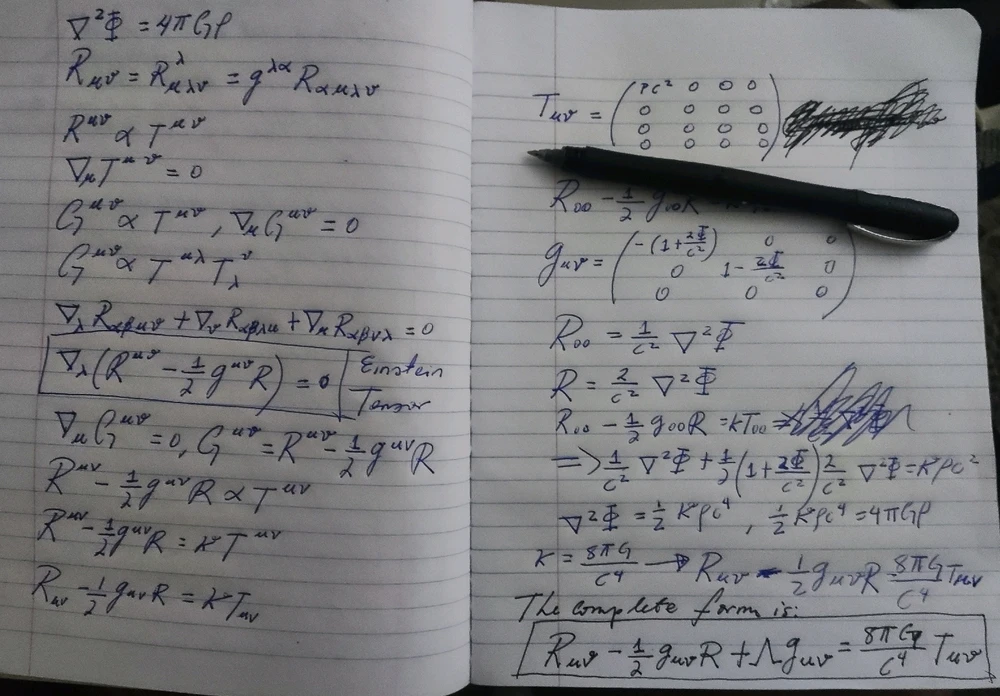 ∇²Φ = 4πGρ
R_μν = R^λ_μλν = g^λα R_αμλν
R^μν ∝ T^μν
∇_μ T^μν = 0
G^μν ∝ T^μν, ∇_μ G^μν = 0
G^μν ∝ T^μλ T_λ^ν
∇_λ R_αβμν + ∇_ν R_αβλμ + ∇_μ R_αβνλ = 0
∇_λ (R^μν − 1/2 g^μν R) = 0 | Einstein Tensor
∇_μ G^μν = 0, G^μν = R^μν − 1/2 g^μν R
R^μν − 1/2 g^μν R ∝ T^μν
R^μν − 1/2 g^μν R = κT^μν
R_μν − 1/2 g_μν R = κT_μν
T_μν = (ρc² 0 0 0
0 0 0 0
0 0 0 0
0 0 0 0)
R₀₀ − 1/2 g₀₀R
g_μν = (−(1 + 2Φ/c²) 0 0
0 1 − 2Φ/c² 0
0 0 0)
R₀₀ = 1/c² ∇²Φ
R = 2/c² ∇²Φ
R₀₀ − 1/2 g₀₀R = κT₀₀ ⇒
⇒ 1/c² ∇²Φ + 1/2 (1 + 2Φ/c²) 2/c² ∇²Φ = κρc²
∇²Φ = 1/2 κρc⁴, 1/2 κρc⁴ = 4πGρ
κ = 8πG/c⁴ → R_μν − 1/2 g_μν R = 8πG/c⁴ T_μν
The complete form is:
R_μν − 1/2 g_μν R + Λg_μν = 8πG/c⁴ T_μν